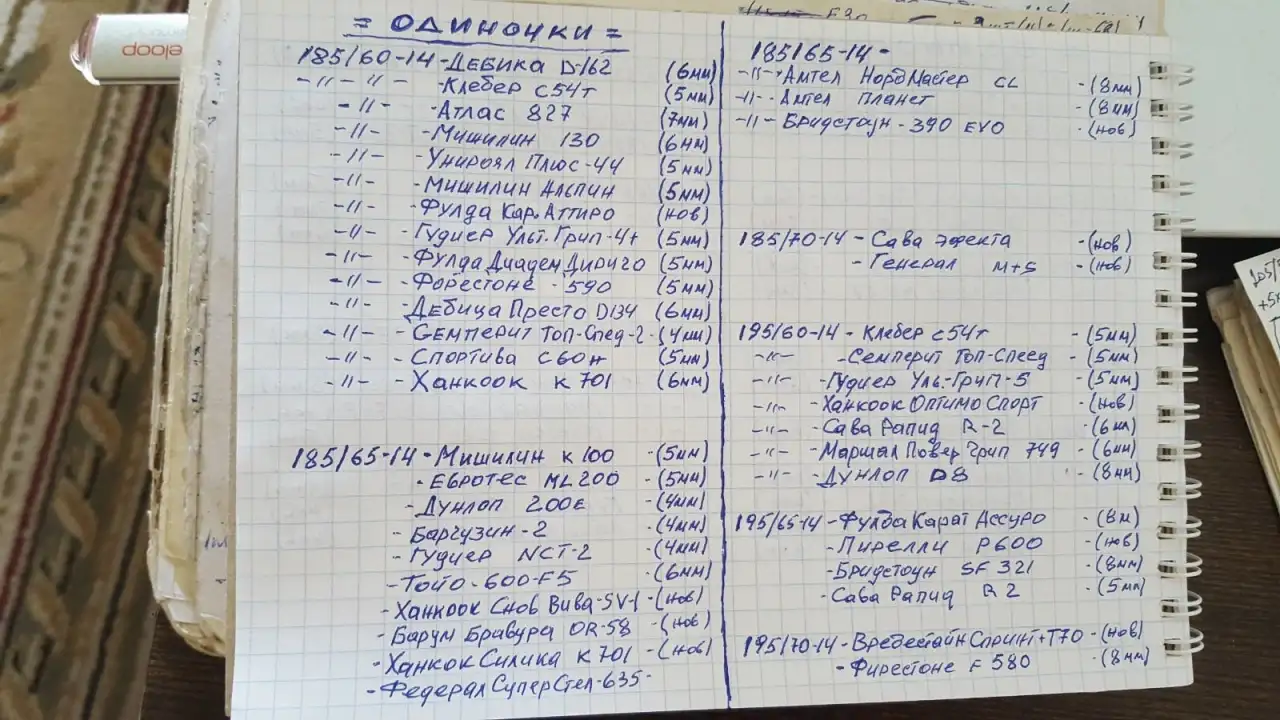 = ОДИНОЧКИ =
185/60-14-ДЕБИКА D-162 (6мм)
-"- -"- -Клебер с54т (5мм)
-"- -Атлас 827 (7мм)
-"- -Мишилин 130 (6мм)
-"- -Унироял Плюс-44 (5мм)
-"- -Мишилин Альпин (5мм)
-"- -Фулда Кар. Аттиро (нов)
-"- -Гудиер Ульт. Грип-4+ (5мм)
-"- -Фулда Диадем Дириго (5мм)
-"- -Форестоне -590 (5мм)
-"- -Дебица Престо D134 (6мм)
-"- -Семперит Топ-Спед-2-(4мм)
-"- -Спортива с60н (5мм)
-"- -Ханкоок к 701 (6мм)
185/65-14-Мишилин к 100 -(5мм)
-Евротес ML200 -(5мм)
-Дунлоп 200Е -(4мм)
-Баргузин-2 -(4мм)
-Гудиер NCT-2 -(4мм)
-Тойо-600-F5 -(6мм)
-Ханкоок Снов Вива-SV-1-(нов)
-Барум Бравура OR-58 -(нов)
-Ханкок Силика к 701 -(нов)
-Федерал Супер Стел-635-
185/65-14-
-"- -Амтел НордМастер CL -(8мм)
-"- -Амтел планет -(8мм)
-"- -Бридстоун-390 EVO -(нов)
185/70-14-Сава эфекта -(нов)
-Генерал M+S -(нов)
195/60-14-Клебер с54т -(5мм)
-"- -Семперит Топ-Спеед -(5мм)
-"- -Гудиер Уль.-Грип-5 -(5мм)
-"- -Ханкоок Оптимо Спорт -(нов)
-"- -Сава Рапид R-2 -(6мм)
-"- -Маршал Повер Грип 749 -(6мм)
-"- -Дунлоп D8 -(8мм)
195/65-14-Фулда Карат Ассуро -(8м)
-Пирелли Р600 -(нов)
-Бридстоун SF 321 -(8мм)
-Сава Рапид R 2 -(5мм)
195/70-14-Вредестайн Спринт+Т70-(нов)
-Фирестоне F 580 -(8мм)
eloop